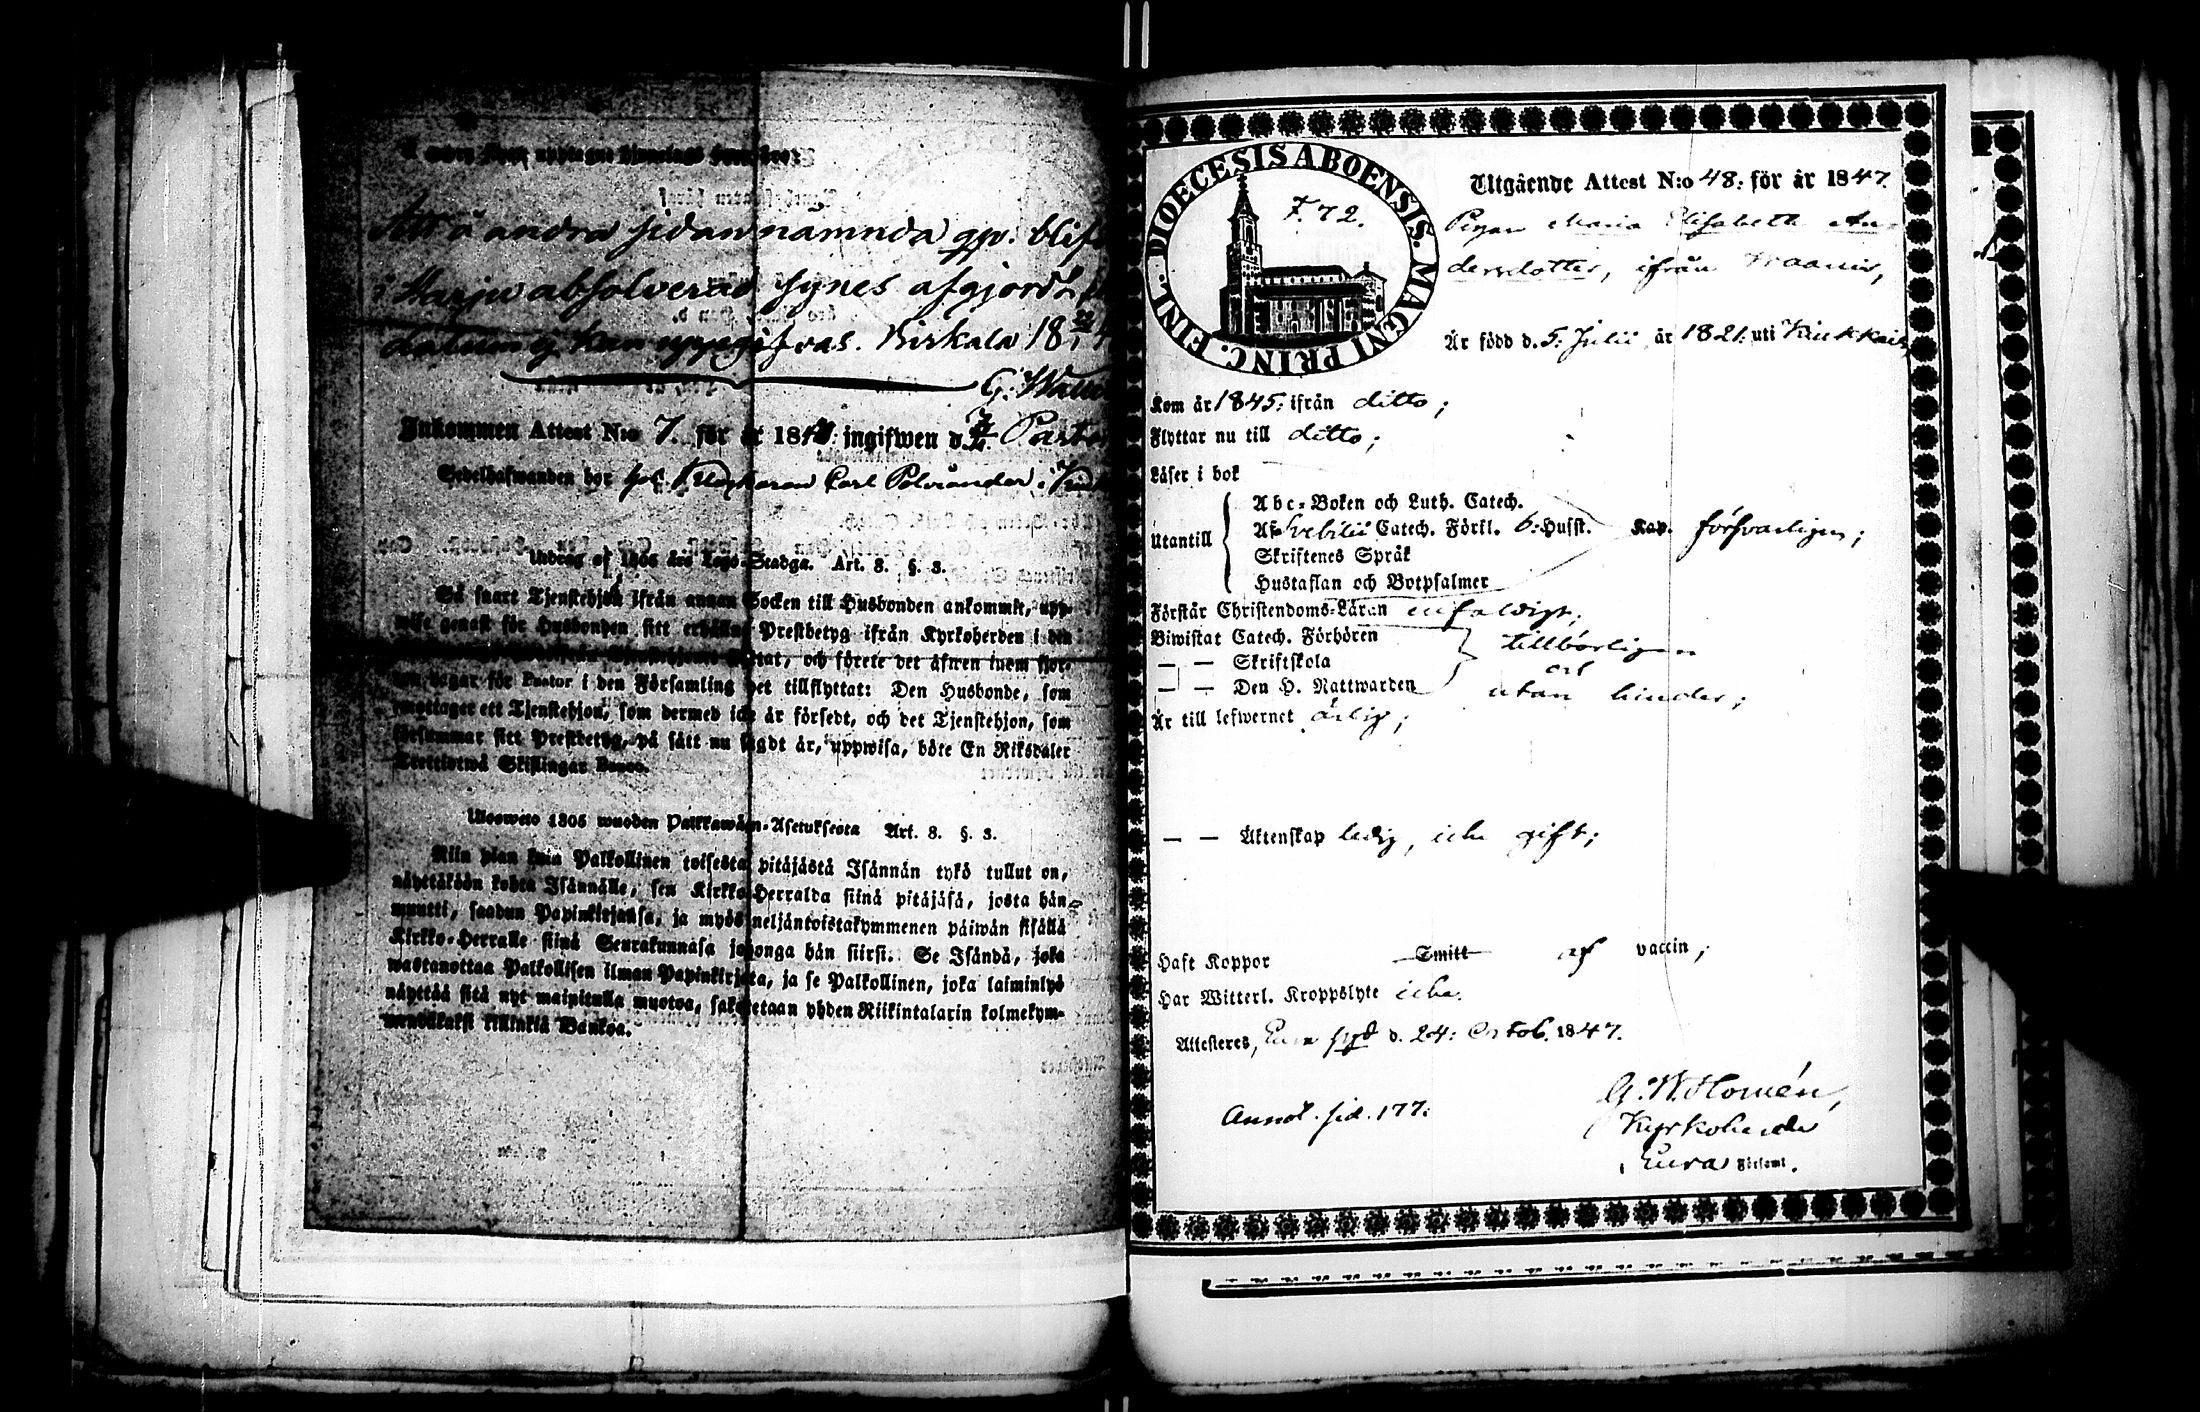 Att å andra sidan nämnda qp. blif
i Harju absolverad synes afgjordt,
datum ej kan uppgifvas. Birkala 18
Inkommen Attest N:o 7. för år 184 ingifwen d.
Sedelhafwanden bor hos Carl Polviander i
Utdrag af 1805 års Lego-Stadga. Art. 8. §. 3.
Så snart Tjenstehjon ifrån annan Socken till Husbonden ankommit, upp-
wise genast för Husbonden sitt erhållna Prestbetyg ifrån Kyrkoherden i den
flyttat, och förete det äfwen inom fjor-
ton dagar för Pastor i den Församling det tillflyttat: Den Husbonde, som
emottager ett Tjenstehjon, som dermed icke är försedt, och det Tjenstehjon, som
försummar sitt Prestbetyg, på sätt nu sagdt är, uppwisa, böte En Riksdaler
Trettiotwå Skillingar Banco.
Ulosweto 1805 wuoden Palkkawäen-Asetuksesta Art. 8. §. 3.
Niin pian kuin Palkollinen toisesta pitäjästä Isännän tykö tullut on,
näyttäköön kohta Isännälle, sen Kirkko-Herralda siinä pitäjäsä, josta hän
muutti, saadun Papinkirjansa, ja myös neljäntoistakymmenen päiwän sisällä
Kirkko-Herralle siinä Seurakunnasa johonga hän siirsi. Se Isändä, joka
wastanottaa Palkollisen ilman Papinkirjata, ja se Palkollinen, joka laiminlyö
näyttää sitä nyt mainitulla muotoa, sakotetaan yhden Riikintalarin kolmekym-
mendäkaksi killinkiä Bankoa.
DIOECESIS ABOENSIS. MAGNI PRINC. FINL.
F. 72.
Utgående Attest N:o 48: för år 1847.
Pigan Maria Elisabeth An-
dersdotter, ifrån
Är född d. 5: Julii år 1821: uti Kiukkais,
Kom år 1845: ifrån ditto;
Flyttar nu till ditto;
Läser i bok
Utantill
Abc-Boken och Luth. Catech.
Af Svebilii Catech. Förkl. 6: Husst. Kap. försvarligen;
Skriftenes Språk
Hustaflan och Botpsalmer
Förstår Christendoms-Läran enfaldigt;
Biwistat Catech. Förhören tillbörligen
— — Skriftskola och
— — Den H. Nattwarden utan hinder;
Är till lefwernet ärlig;
— — Äktenskap ledig, icke gift;
Haft Koppor Smitt af vaccin;
Har Witterl. Kroppslyte icke.
Attesteras, Eura pgd d. 24: Octob. 1847.
G. W. Homén,
Annot. sid. 177: Kyrkoherde
i Eura Församl.